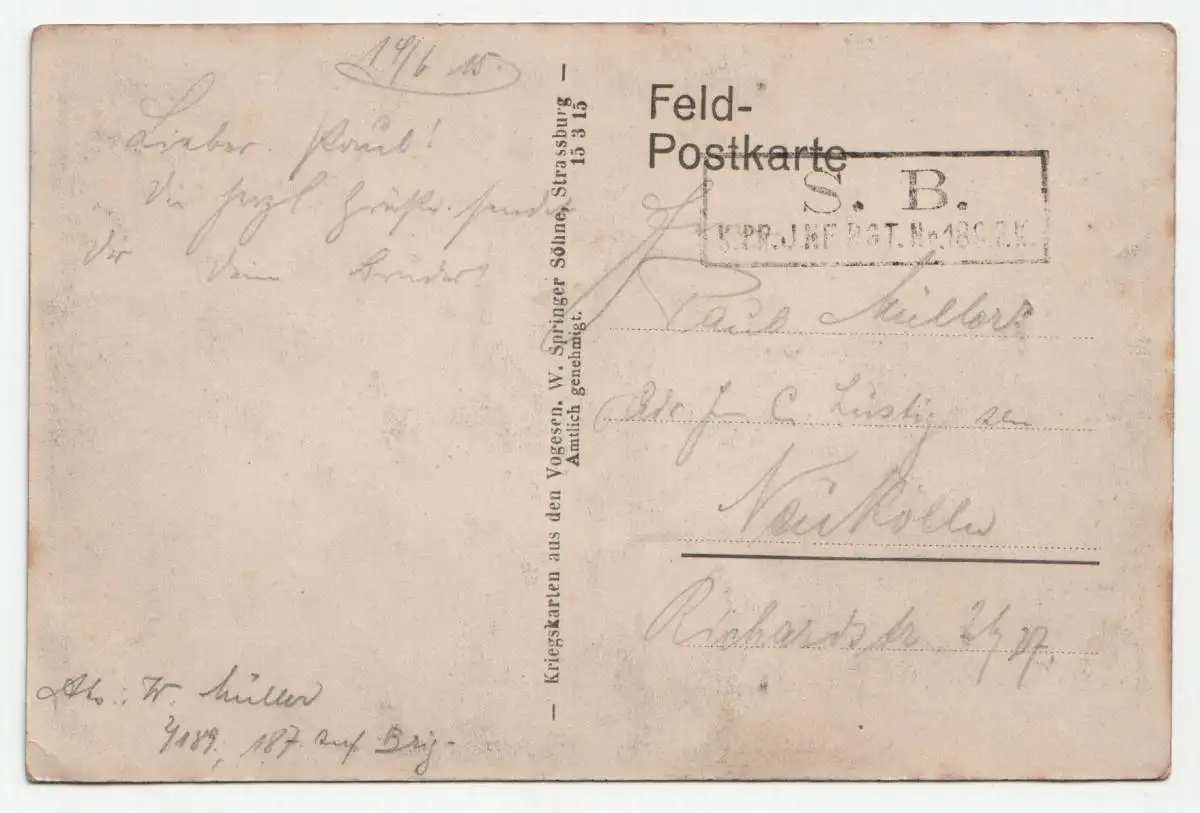 19/6 15.
Lieber Paul!
Die herzl Grüße sendet
Dir Dein Bruder
Abs.: W. Müller
2/189, 187. Inf Brig.
Kriegskarten aus den Vogesen. W. Springer Söhne, Strassburg
15 3 15
Amtlich genehmigt.
Feld-
Postkarte
S. B.
K.PR.JNF.RGT.No.189.2.K.
Paul Müller
C. Lustig sen
Neukölln
Richardstr